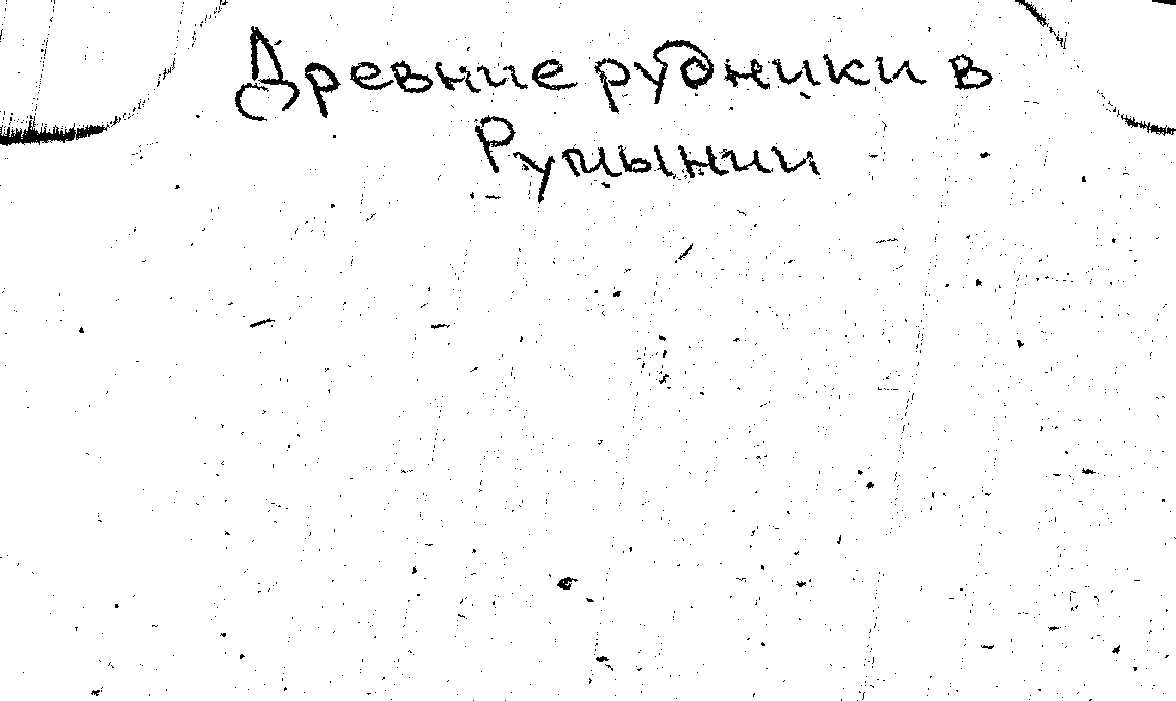 Древние рудники в
Румынии